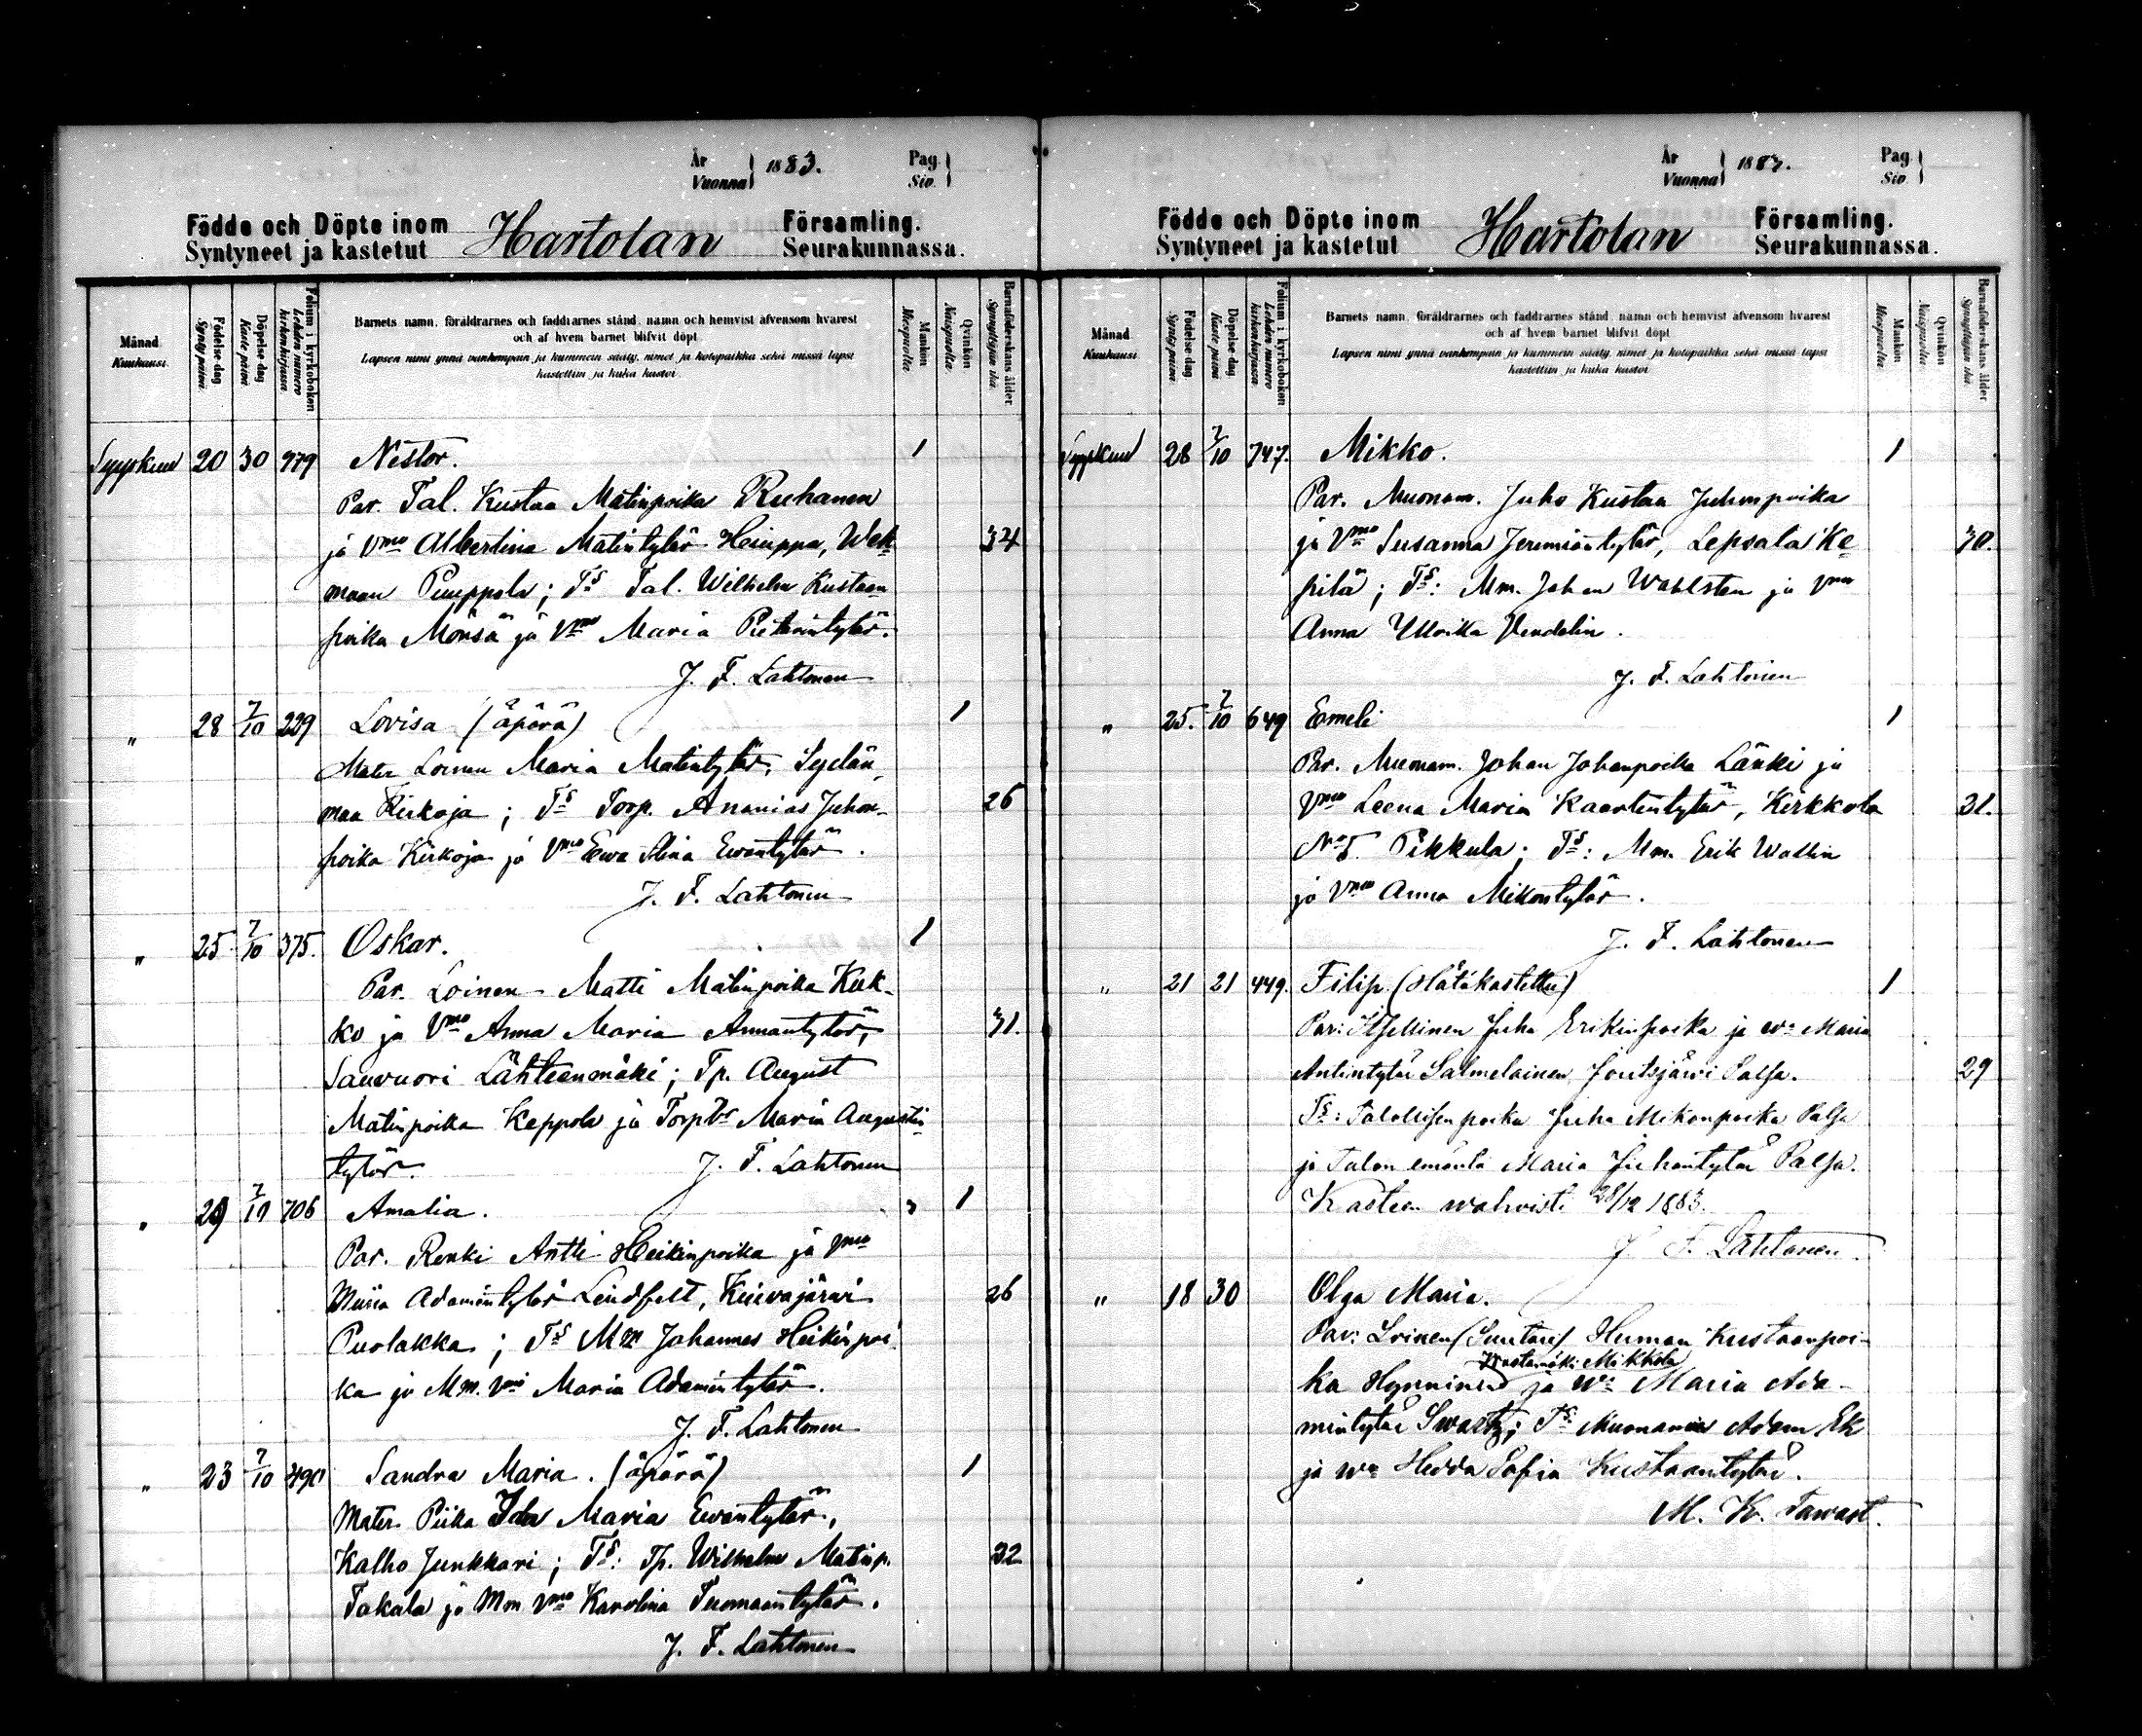 År
Vuonna } 1883.
Pag.
Siv. }
Födde och Döpte inom
Syntyneet ja kastetut
Hartolan
Församling.
Seurakunnassa.
Månad.
Kuukausi.
Födelse dag.
Synty päivä.
Döpelse dag.
Kaste päivä.
Folium i kyrkoboken
Lehden numero
kirkonkirjassa.
Barnets namn, föräldrarnes och faddrarnes stånd, namn och hemvist äfvensom hvarest
och af hvem barnet blifvit döpt.
Lapsen nimi ynnä vanhempain ja kummein sääty, nimet ja kotopaikka sekä missä lapsi
kastettiin ja kuka kastoi.
Mankön
Miespuolta
Qvinkön
Naispuolta.
Barnaföderskans ålder.
Synnyttäjän ikä.
Syyskuu 20 30 979 Nestor. 1
Par. Tal. Kustaa Matinpoika Ruhanen
ja Vmo Albertina Matintytär Heinppa, Wek- 34
maan Pumppola; Ts Tal. Wilhelm Kustaan
poika Mörsä ja Vmo Maria Pietarintytär.
J. F. Lahtonen
" 28 7/10 229 Lovisa (äpärä) 1
Mater Loinen Maria Matintytär, Sydän
maa Kirkoja; Ts Torp. Ananias Juhon- 26
poika Kirkoja ja Vmo Ewa Stina Ewantytär.
J. F. Lahtonen
" 25 7/10 375. Oskar. 1
Par. Loinen Matti Matinpoika Kuk-
ko ja Vmo Anna Maria Annantytär, 31.
Sauvuori Lähteenmäki; Tp. August
Matinpoika Keppola ja Torp Maria Augustin
tytär. J. F. Lahtonen
" 29 7/10 706 Amalia. 1
Par. Renki Antti Heikinpoika ja Vmo
Miina Adamintytär Lindfelt, Kuivajärvi 26
Puolakka; Ts Mm Johannes Heikinpoi
ka ja Mm. Vmo Maria Adamintytär.
J. F. Lahtonen
" 23 7/10 490 Sandra Maria. (äpärä) 1
Mater. Piika Ida Maria Ewantytär,
Kalho Junkkari; Ts: Tp. Wilhelm Matinp. 32
Takala ja Mm Vmo Karolina Tuomaantytär.
J. F. Lahtonen
År
Vuonna } 1883.
Pag.
Siv. }
Födde och Döpte inom
Syntyneet ja kastetut
Hartolan
Församling.
Seurakunnassa.
Månad.
Kuukausi.
Födelse dag.
Synty päivä.
Döpelse dag.
Kaste päivä.
Folium i kyrkoboken
Lehden numero
kirkonkirjassa.
Barnets namn, föräldrarnes och faddrarnes stånd, namn och hemvist äfvensom hvarest
och af hvem barnet blifvit döpt.
Lapsen nimi ynnä vanhempain ja kummein sääty, nimet ja kotopaikka sekä missä lapsi
kastettiin ja kuka kastoi.
Mankön
Miespuolta
Qvinkön
Naispuolta.
Barnaföderskans ålder.
Synnyttäjän ikä.
Syyskuu 28 7/10 747. Mikko. 1
Par. Muonam. Juho Kustaa Juhonpoika
ja Vmo Susanna Jeremiäntytär, Lepsala Ke 30.
pilä; Ts: Mm. Johan Wahlsten ja Vmo
Anna Ullrika Vendelin.
J. F. Lahtonen
" 25. 7/10 649 Emeli 1
Par. Muonam. Johan Johanpoika Länki ja
Vmo Leena Maria Kaarlentytär, Kirkkola 31.
No 5. Pikkula; Ts: Mm. Erik Wallin
ja Vmo Anna Mikontytär.
J. F. Lahtonen
" 21 21 449. Filip (Hätäkastettu) 1
Par: Itsellinen Juha Erikinpoika ja wo Maria
Antintytär Salmelainen Joutsjärvi Palsa. 29
Ts: Talollisen poika Juha Mikonpoika Palsa
ja Talon emäntä Maria Juhontytär Palsa.
Kasteen wahvisti 28/12 1883.
J. F. Lahtonen.
" 18 30 Olga Maria.
Par: Loinen (Suutari) Herman Kustaanpoi-
Mikkola
ka Hynninen ja wo Maria Ada-
mintytär Swartz; Ts: Muonamies Adam Ek
ja wo Hedda Sofia Kustaantytär.
M. K. Tawast.